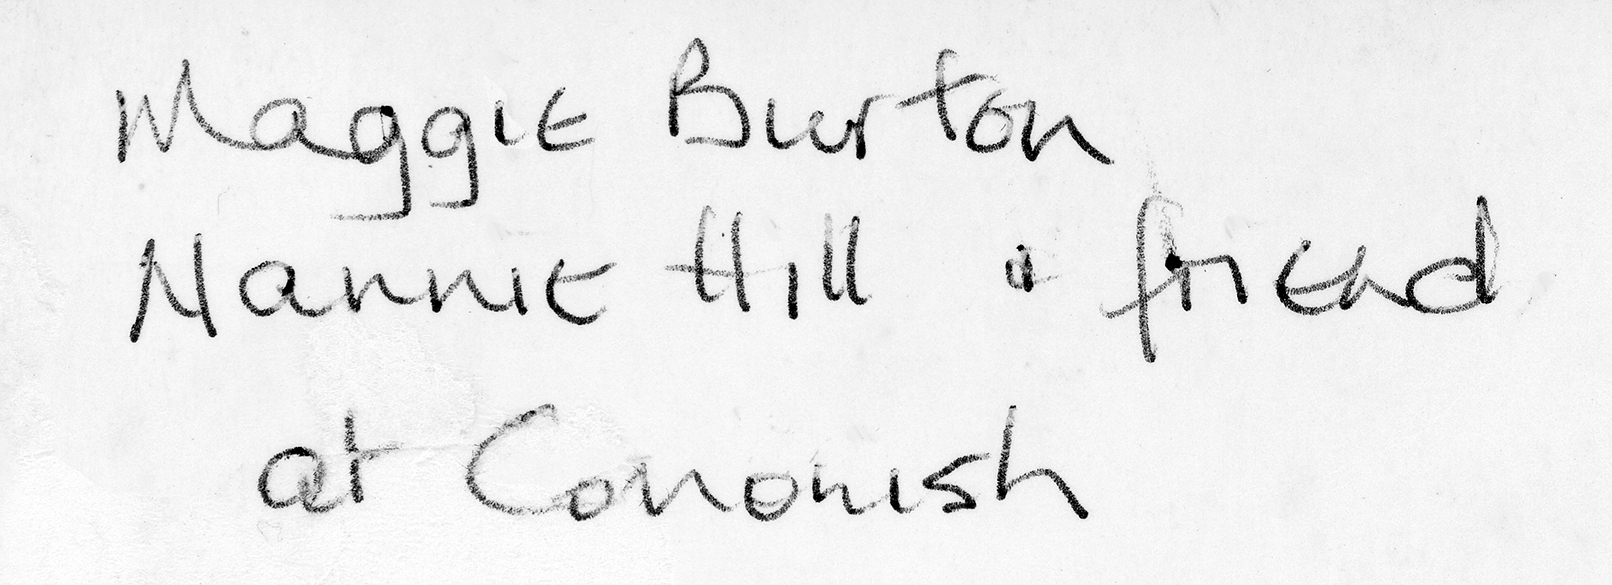 Maggie Burton
Nannie Hill & friend
at Cononish